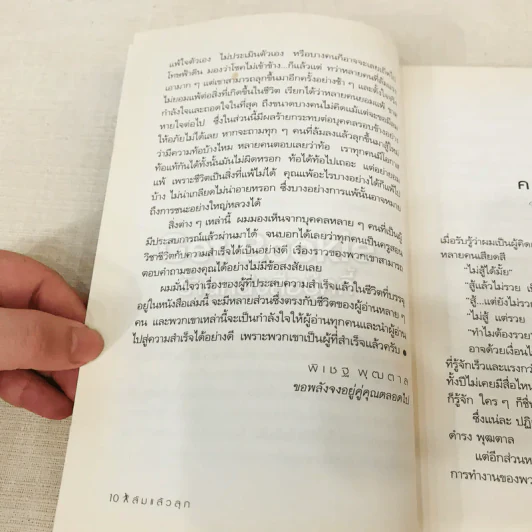 แพ้ใจตัวเอง ไม่ประเมินตัวเอง หรือบางคนก็อาจจะเลยเถิดไป
โทษฟ้าดิน มองว่าโชคไม่เข้าข้าง...ก็แล้วแต่ ทว่าหลายคนที่
เอามาก ๆ แต่เขาสามารถลุกขึ้นมาอีกครั้งอย่างช้า ๆ และตั้งใจจริง
ไม่ยอมแพ้ต่อสิ่งที่เกิดขึ้นในชีวิต เรียกได้ว่าหลายคนยอมแพ้ ขาด
กำลังใจและถอดใจในที่สุด ถึงขนาดบางคนไม่คิดแม้แต่จะขอมีลม
หายใจต่อไป ซึ่งในส่วนนี้มีผลร้ายกระทบต่อบุคคลรอบข้างอย่าง
ให้อภัยไม่ได้เลย หากจะถามทุก ๆ คนที่ล้มลงแล้วลุกขึ้นมาสู้ใหม่
ว่ามีความท้อบ้างไหม หลายคนตอบเลยว่าท้อ เราทุกคนมีโอกาส
ท้อแท้กันได้ทั้งนั้นมันไม่ผิดหรอก ท้อได้ท้อไปเถอะ แต่อย่ายอม
แพ้ เพราะชีวิตเป็นสิ่งที่แพ้ไม่ได้ คุณแพ้อะไรบางอย่างได้ก็แพ้ไป
บ้าง ไม่น่าเกลียดไม่น่าอายหรอก ซึ่งบางอย่างการแพ้นั้นอาจหมาย
ถึงการชนะอย่างใหญ่หลวงได้
สิ่งต่าง ๆ เหล่านี้ ผมมองเห็นจากบุคคลหลาย ๆ คนที่เป็นผู้
มีประสบการณ์แล้วผ่านมาได้ จนบอกได้เลยว่าทุกคนเป็นครูสอน
วิชาชีวิตกับความสำเร็จได้เป็นอย่างดี เรื่องราวของพวกเขาสามารถ
ตอบคำถามของคุณได้อย่างไม่มีข้อสงสัยเลย
ผมมั่นใจว่าเรื่องของผู้ที่ประสบความสำเร็จแล้วในชีวิตที่บรรจุ
อยู่ในหนังสือเล่มนี้ จะมีหลายส่วนซึ่งตรงกับชีวิตของผู้อ่านหลาย ๆ
คน และพวกเขาเหล่านี้จะเป็นกำลังใจให้ผู้อ่านทุกคนและนำผู้อ่าน
ไปสู่ความสำเร็จได้อย่างดี เพราะพวกเขาเป็นผู้ที่สำเร็จแล้วครับ ●
พิเชฐ พุฒตาล
ขอพลังจงอยู่คู่คุณตลอดไป
10 ล้มแล้วลุก
ค
เมื่อรับรู้ว่าผมเป็นผู้คิด
หลายคนเสียดสี
"ไม่สู้ได้มั้ย"
"สู้แล้วไม่รวย
"สู้...แต่ยังไม่รวย
"ไม่สู้ แต่รวย
"ทำไมต้องรวย
อาจด้วยเงื่อนไ
ที่รู้จักเร็วและแรงกว่า
ทั้งปีไม่เคยมีสื่อไหน
ก็รู้จัก ใคร ๆ ก็ชื่น
ซึ่งแน่ละ ปฏิ
ดำรง พุฒตาล
แต่อีกส่วนห
การทำงานของพว